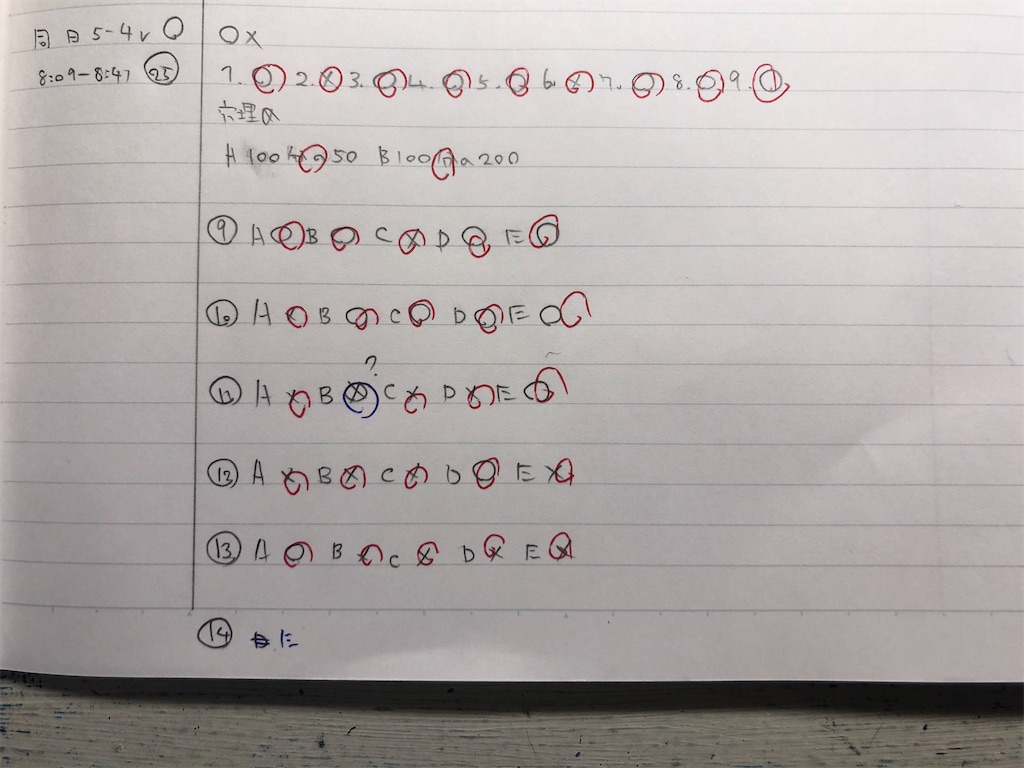 5-4 ✓ ○
8:09-8:47 25
○×
1. ○ 2. × 3. ○ 4. ○ 5. ○ 6. × 7. ○ 8. ○ 9. ○
A 100 50 B 100 200
⑨ A ○ B ○ C × D ○ E ○
⑩ A ○ B ○ C ○ D ○ E ○
?
⑪ A × B × C × D × E ○
⑫ A × B × C × D ○ E ×
⑬ A ○ B × C × D × E ×
⑭ E